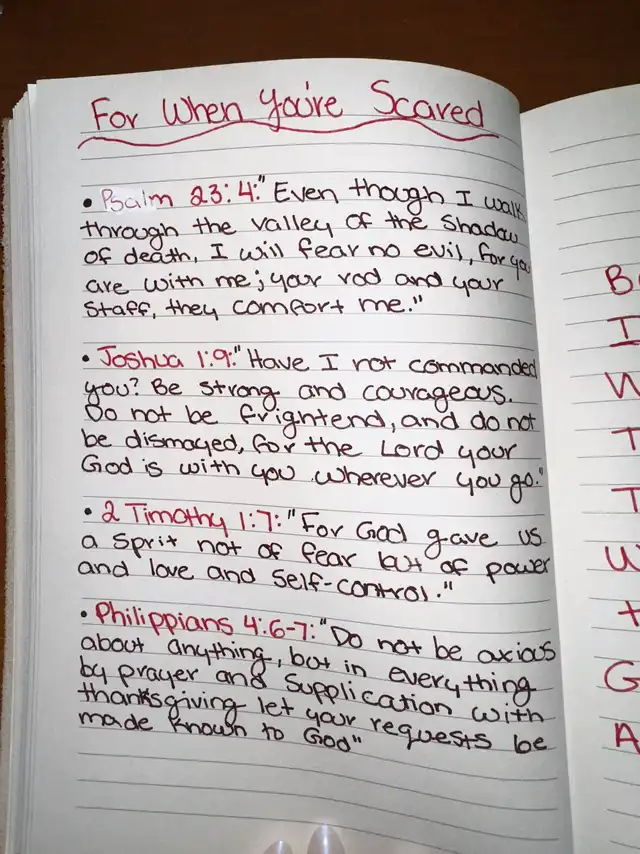 For When You're Scared
• Psalm 23:4:"Even though I walk
through the valley of the Shadow
of death, I will fear no evil, for you
are with me; your rod and your
Staff, they comfort me."
• Joshua 1:9:"Have I not commanded
you? Be strong and courageous.
Do not be frigntend, and do not
be dismayed, for the Lord your
God is with you wherever you go."
• 2 Timothy 1:7:"For God gave us
a Sprit not of fear but of power
and love and Self-control."
• Philippians 4:6-7:"Do not be axious
about anything, but in everything
by prayer and Supplication with
thanksgiving let your requests be
made known to God"
B
I
W
T
T
U
t
G
A